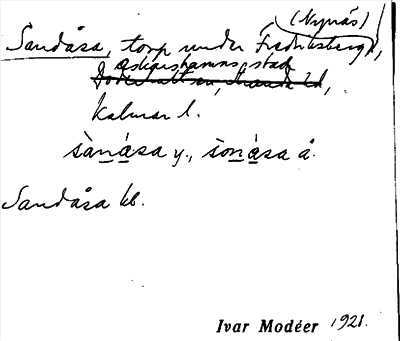 (Nynäs)
Sandåsa, torp under Fredriksberg,
Oskarshamns stad
Döderhult sn, Stranda hd,
Kalmar l.
sànása y., sonása å.
Sandåsa kb.
Ivar Modéer 1921.